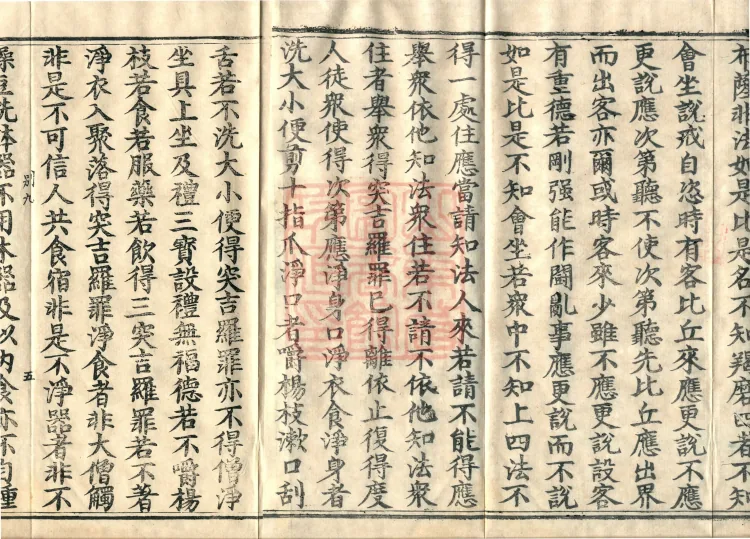 布薩非法如是比是名不知羯磨四者不知
會坐說戒自恣時有客比丘來應更說不應
更說應次第聽不使次第聽先比丘應出界
而出客亦爾或時客來少雖不應更說設客
有重德若剛强能作鬪亂事應更說而不說
如是比是不知會坐若衆中不知上四法不
得一處住應當請知法人來若請不能得應
舉衆依他知法衆住若不請不依他知法衆
住者舉衆得突吉羅罪已得離依止復得度
人徒衆使得次第應淨身口淨衣食淨身者
洗大小便剪十指爪淨口者嚼楊枝漱口刮
舌若不洗大小便得突吉羅罪亦不得僧淨
坐具上坐及禮三寶設禮無福德若不嚼楊
枝若食若服藥若飲得三突吉羅罪若不著
淨衣入聚落得突吉羅罪淨食者非大僧觸
非是不可信人共食宿非是不淨器者非不
別九
五
澡豆洗鉢器不用木器及以內食亦不均種